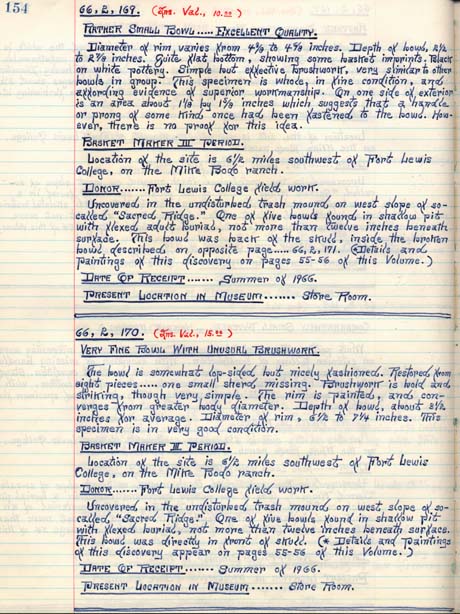 154
66, 2, 169. (Ins. Val., 10.00)
Rather Small Bowl..... Excellent Quality.
Diameter of rim varies from 4 3/8 to 4 5/8 inches. Depth of bowl, 2 1/2
to 2 5/8 inches. Quite flat bottom, showing some basket imprints. Black
on white pottery. Simple but effective brushwork, very similar to other
bowls in group. This specimen is whole, in fine condition, and
affording evidence of superior workmanship. On one side of exterior
is an area about 1 1/8 by 1 5/8 inches which suggests that a handle
or prong of some kind once had been fastened to the bowl. How-
ever, there is no proof for this idea.
Basket Maker III Period.
Location of the site is 6 1/2 miles southwest of Fort Lewis
College, on the Mike Bodo ranch.
Donor...... Fort Lewis College field work.
Uncovered in the undisturbed trash mound on west slope of so-
called "Sacred Ridge." One of five bowls found in shallow pit
with flexed adult burial, not more than twelve inches beneath
surface. This bowl was back of the skull, inside the broken
bowl described on opposite page.... 66, 2, 171. (*Details and
paintings of this discovery on pages 55-56 of this Volume.)
Date Of Receipt...... Summer of 1966.
Present Location in Museum....... Store Room.
66, 2, 170. (Ins. Val., 15.00)
Very Fine Bowl With Unusual Brushwork.
The bowl is somewhat lop-sided but nicely fashioned. Restored from
eight pieces..... one small sherd missing. Brushwork is bold and
striking, though very simple. The rim is painted, and con-
verges from greater body diameter. Depth of bowl, about 3 1/2
inches for average. Diameter of rim, 6 1/2 to 7 1/4 inches. This
specimen is in very good condition.
Basket Maker III Period.
Location of the site is 6 1/2 miles southwest of Fort Lewis
College, on the Mike Bodo ranch.
Donor...... Fort Lewis College field work.
Uncovered in the undisturbed trash mound on west slope of so-
called, "Sacred Ridge." One of five bowls found in shallow pit
with flexed burial, not more than twelve inches beneath surface.
This bowl was directly in front of skull. (* Details and paintings
of this discovery appear on pages 55-56 of this Volume.)
Date Of Receipt....... Summer of 1966.
Present Location in Museum....... Store Room.